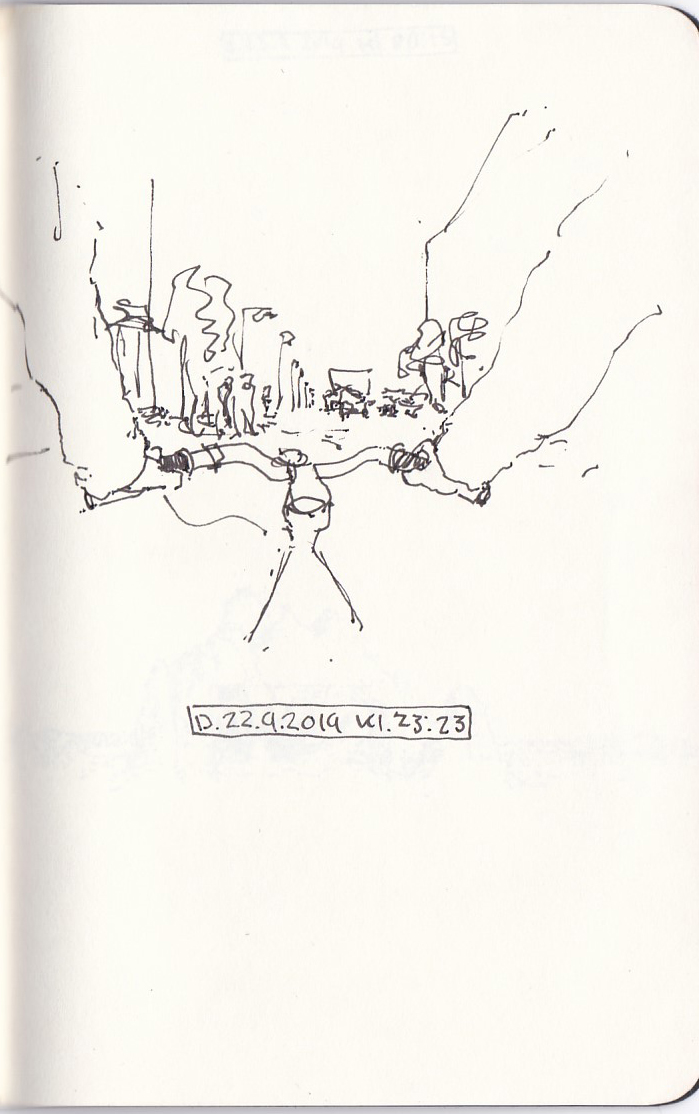 D.22.9.2019 Kl.23:23